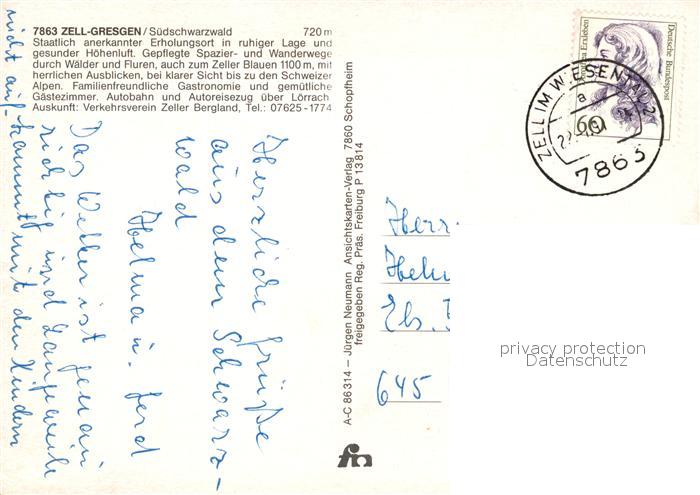 7863 ZELL-GRESGEN/Südschwarzwald 720 m
Staatlich anerkannter Erholungsort in ruhiger Lage und
gesunder Höhenluft. Gepflegte Spazier- und Wanderwege
durch Wälder und Fluren, auch zum Zeller Blauen 1100 m, mit
herrlichen Ausblicken, bei klarer Sicht bis zu den Schweizer
Alpen. Familienfreundliche Gastronomie und gemütliche
Gästezimmer. Autobahn und Autoreisezug über Lörrach.
Auskunft: Verkehrsverein Zeller Bergland, Tel.: 07625-1774
Herzliche Grüße
aus dem Schwarz-
wald
Helma u. Gerd
Das Wetter ist genau
richtig und Langeweile
kommt mit den Kindern
nicht auf.
A-C 86314 — Jürgen Neumann Ansichtskarten-Verlag 7860 Schopfheim
freigegeben Reg. Präs. Freiburg P 13 814
Deutsche Bundespost
Dorothea Erxleben
60
ZELL IM WIESENTAL 2
a
7863
Herr
645
privacy protection
Datenschutz